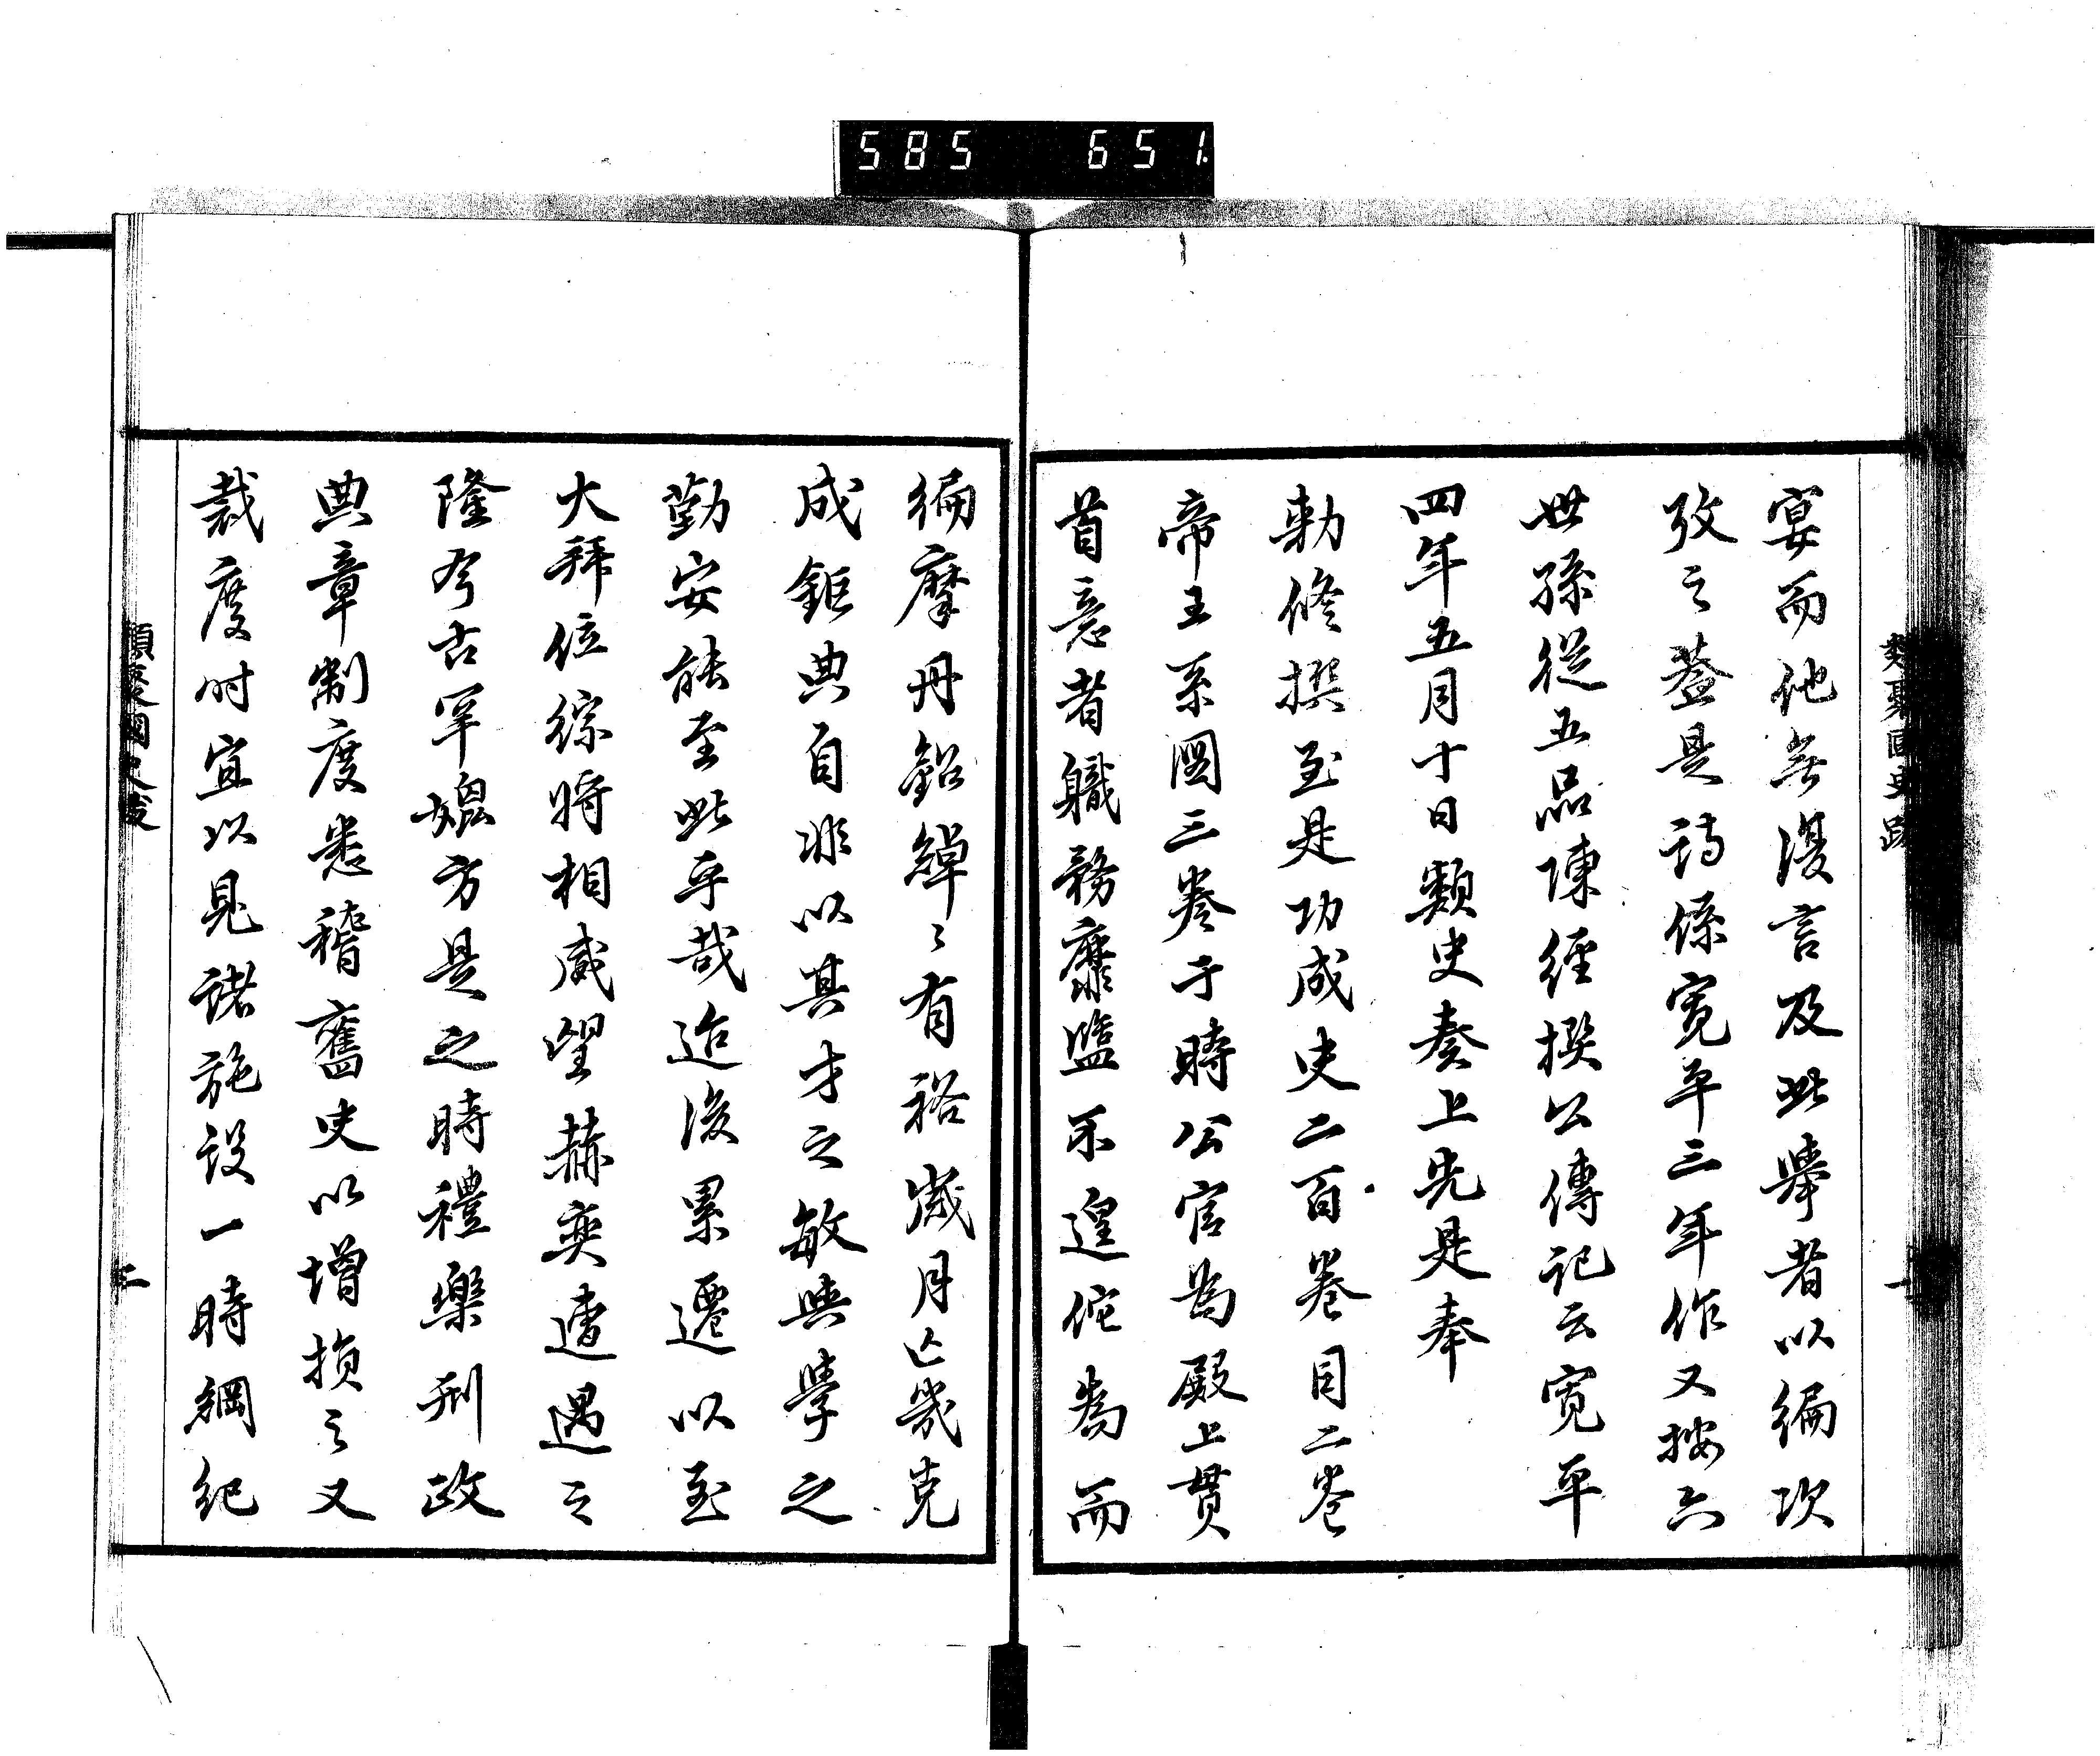 585 651
類聚國史跋 一
宴而他無復言及此舉者以編次
攷之蓋是詩係寛平三年作又按六
世孫從五品陳經撰公傳記云寛平
四年五月十日類史奏上先是奉
勅修撰至是功成史二百卷目二卷
帝王系圖三卷于時公官為殿上貫
首意者職務靡盬不遑佗為而
編摩丹鉛綽〻有裕歲月亡幾克
成鉅典自非以其才之敏與學之
勤安能至此乎哉迨後累遷以至
大拜位綜將相威望赫奕遭遇之
隆夸古罕媲方是之時禮樂刑政
典章制度悉稽舊史以增損之又
裁度时宜以見諸施設一時綱紀
類聚國史跋 二